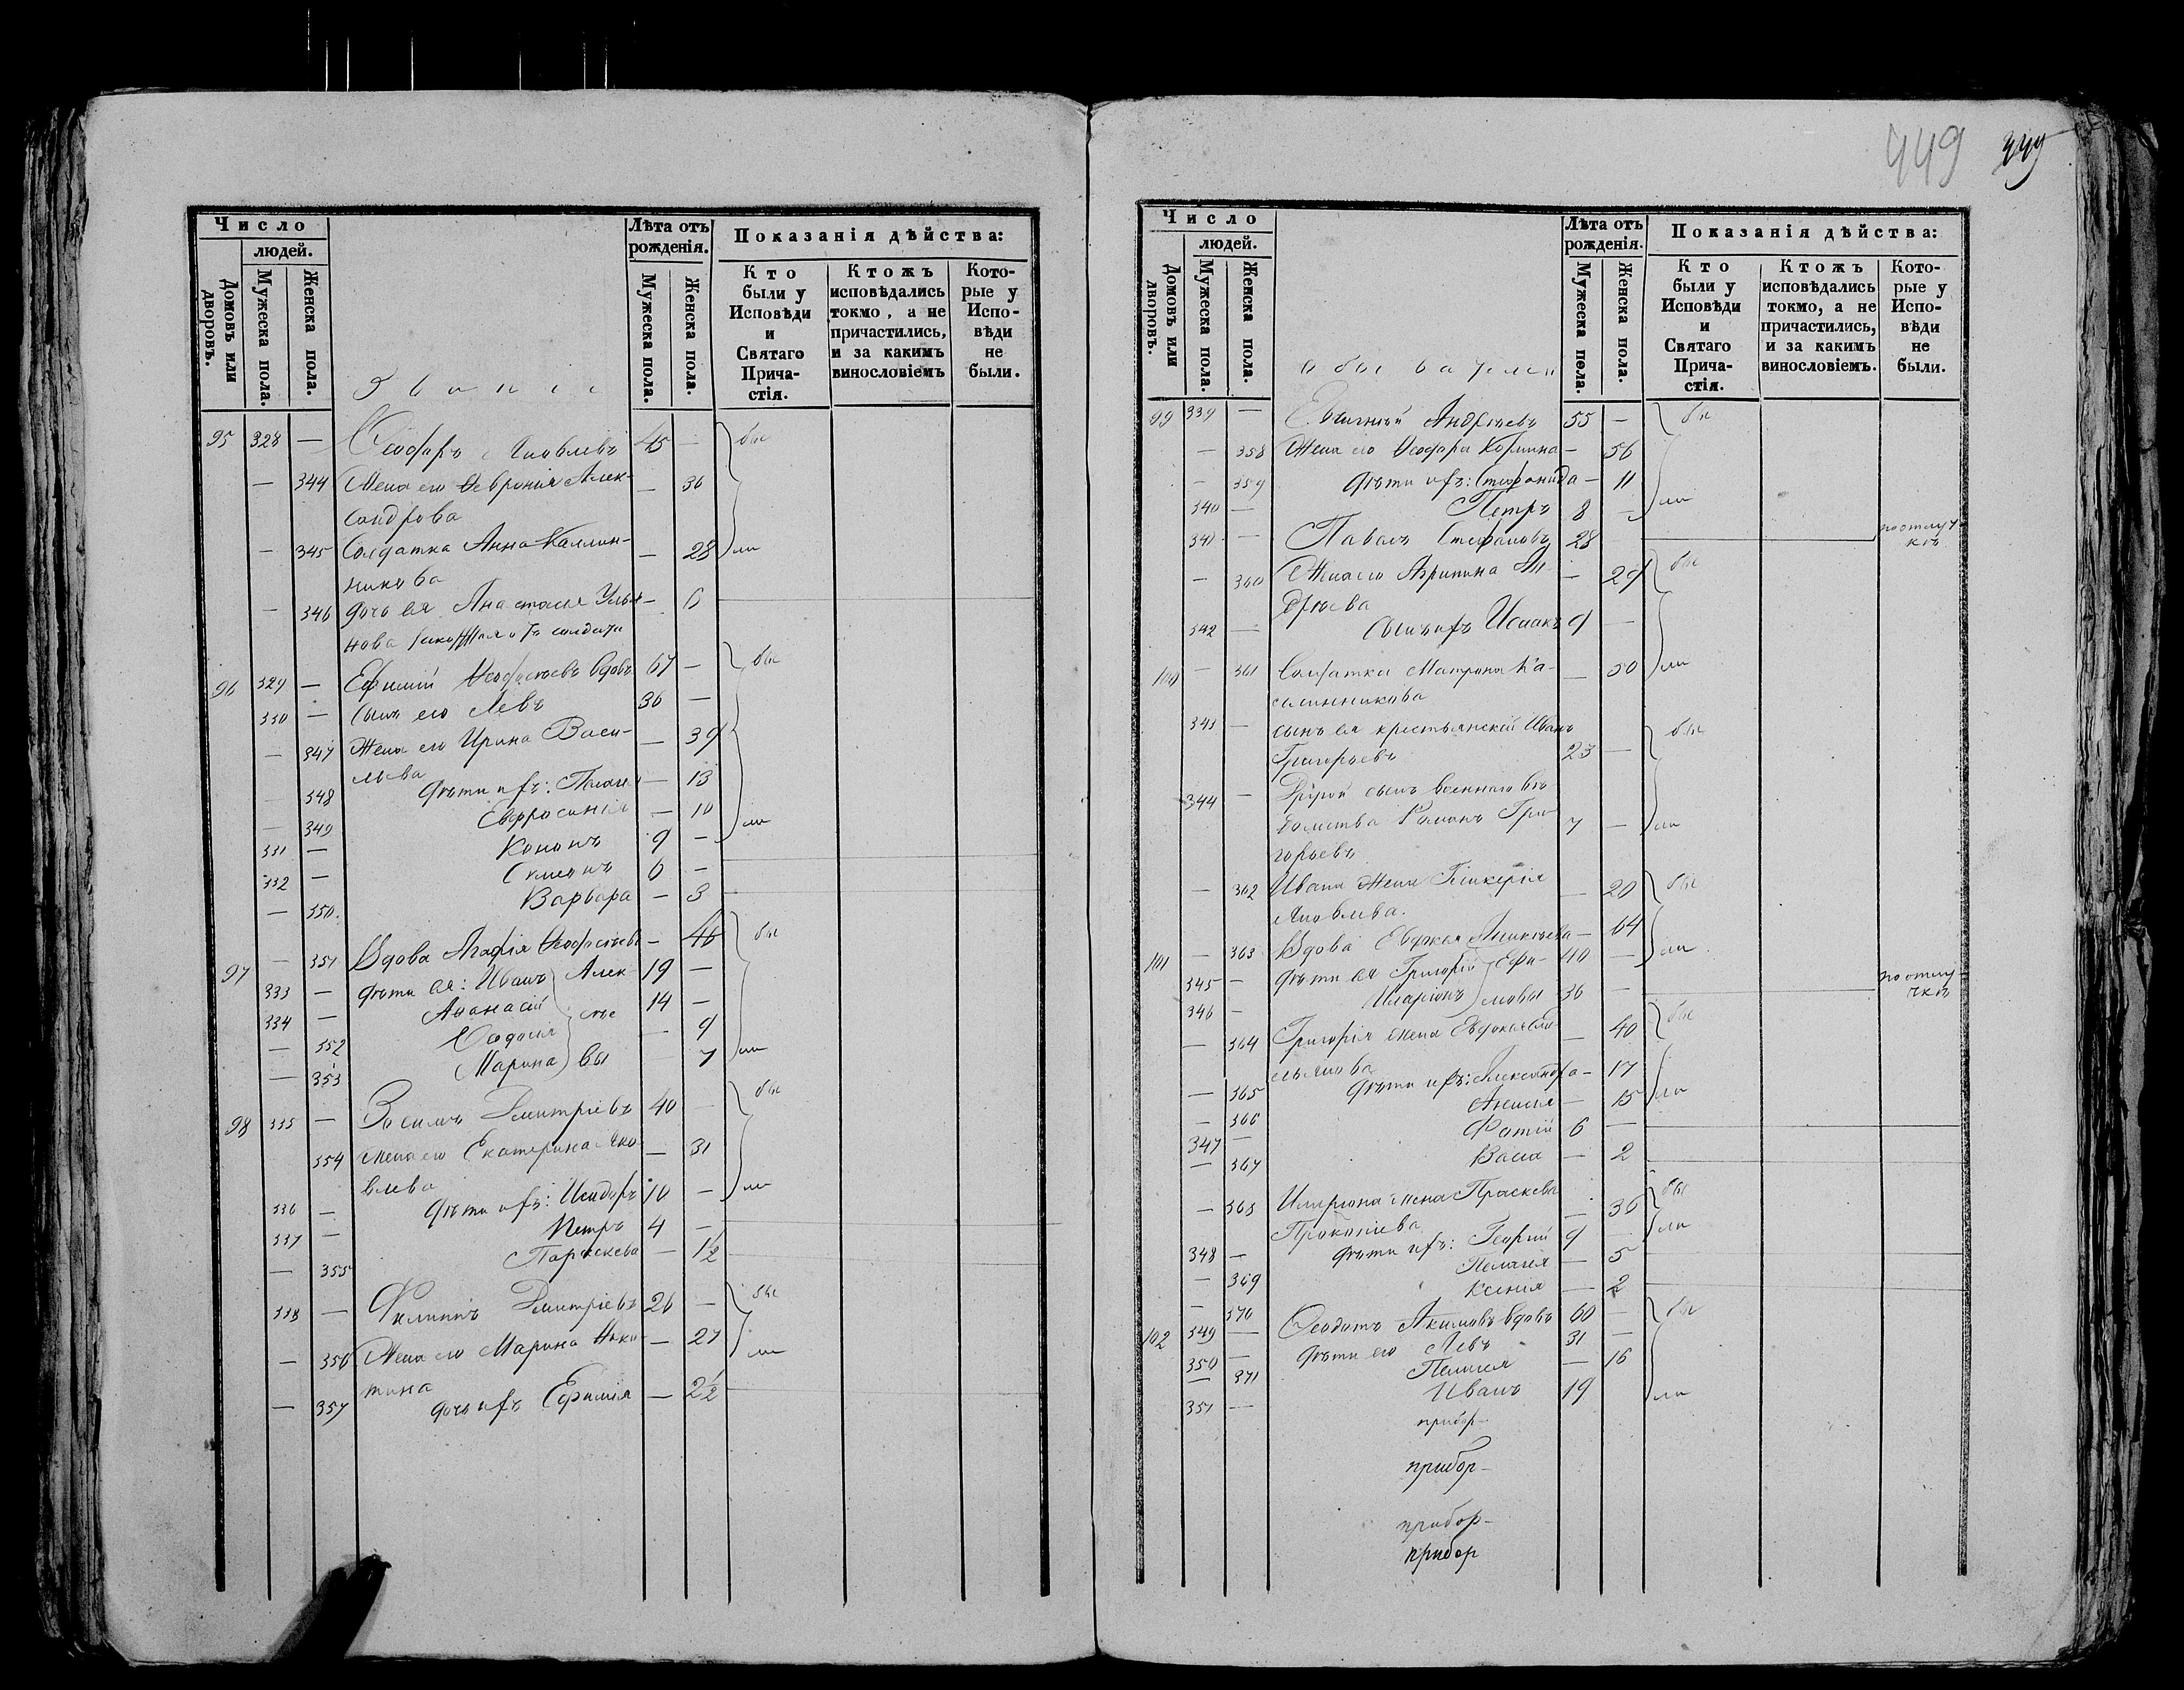 449 449
Число
людей.
Домовъ или дворовъ.
Мужеска пола.
Женска пола.
Званіе
Лѣта отъ рожденія.
Мужеска пола.
Женска пола.
Показанія дѣйства:
Кто были у Исповѣди и Святаго Прича-стія.
Ктожъ исповѣдались токмо, а не причастились, и за какимъ винословіемъ
Кото-рые у Испо-вѣди не были.
95 328 — Ѳеодоръ Яковлевъ 45 — бы
— 344 Жена его Ѳевронія Алек- — 36
сандрова
— 345 Солдатка Анна Каллин- — 28 ли
никова
— 346 дочь ея Анастасія Улья- — 6
нова
96 329 — Ефимій вдовъ 67 — бы
330 — сынъ его Левъ 36 —
— 347 Жена его Ирина Васи- — 39
льева
— 348 дѣти ихъ: — 13
— 349 Евфросинія — 10
331 — Кононъ 9 — ли
332 — Симеонъ 6 —
— 350 Варвара — 3
97 — 351 Вдова Агафія — 46 бы
333 — дѣти ея: Иванъ Алек- 19 —
334 — Аѳанасій сѣе 14 —
— 352 Ѳеодосія — 9
— 353 Марина вы — 7 ли
98 335 — Зосимъ Дмитріевъ 40 — бы
354 жена его Екатерина Яко- — 31
влева
336 — дѣти ихъ: Исидоръ 10 — ли
337 — Петръ 4 —
— 355 Параскева — 1½
338 — Филиппъ Дмитріевъ 26 — бы
— 356 Жена его Марина Ники- — 27 ли
тина
— 357 дочь ихъ Ефимія — 2½
Число
людей.
Домовъ или дворовъ.
Мужеска пола.
Женска пола.
обывателей
Лѣта отъ рожденія.
Мужеска пола.
Женска пола.
Показанія дѣйства:
Кто были у Исповѣди и Святаго Прича-стія.
Ктожъ исповѣдались токмо, а не причастились, и за какимъ винословіемъ.
Кото-рые у Испо-вѣди не были.
99 339 — Андреевъ 55 — бы
— 358 Жена его Ѳеодора — 56
— 359 дѣти ихъ: Стефанида — 11
340 — Петръ 8 — ли
341 — Павелъ Стефановъ 28 по отлуч-
кѣ
— 360 Жена его Агрипина Ан- — 29 бы
дреева
342 — сынъ ихъ Исаакъ 9 —
100 — 361 Солдатка Матрона Ка- — 50 ли
линникова
343 — сынъ ея крестьянскій Иванъ
Григорьевъ 23 — бы
344 — Другой сынъ военнаго вѣ-
домства Романъ Гри- 7 — ли
горьевъ
— 362 Ивана жена Гликерія — 20 бы
Яковлева.
101 — 363 Вдова Евдокія — 64
345 — дѣти ея Григорій Ефи- 40 — ли
346 — Иларіонъ мовы 36 — по отлу-
чкѣ
— 364 Григорія жена Евдокія — 40 бы
— 365 дѣти ихъ: Александра — 17
— 366 Анисія — 15 ли
347 — Фотій 6 —
— 367 Васса — 2
— 368 Иларіона жена Праскева — 36 бы
Прокопіева
348 — дѣти ихъ: Георгій 9 — ли
— 369 Пелагія — 5
— 370 Ксенія — 2
102 349 — Ѳеодотъ Акимовъ вдовъ 60 — бы
350 — дѣти его Левъ 31 —
— 371 Пелагія — 16
351 — Иванъ 19 ли
прибор-
прибор-
прибор-
прибор